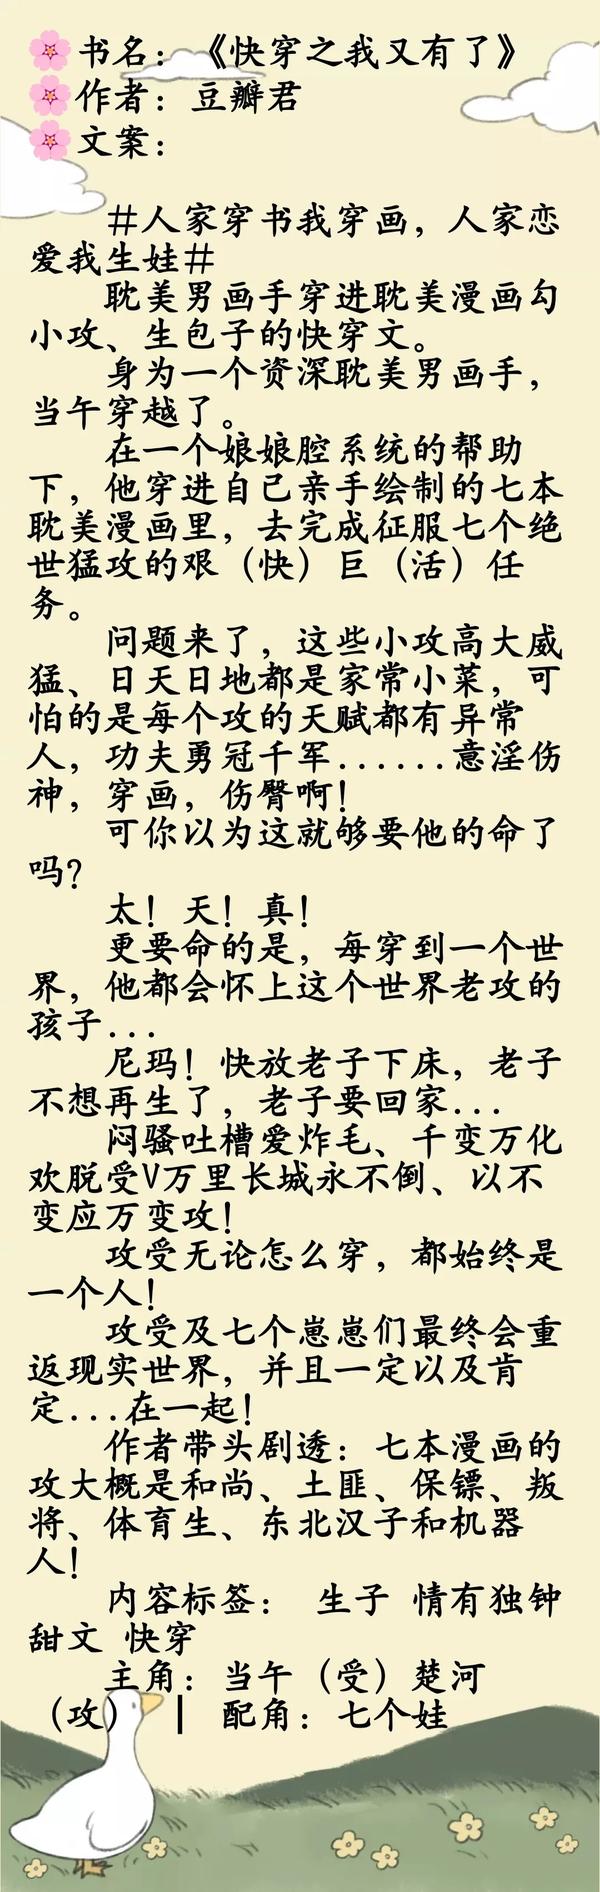 书名：《快穿之我又有了》
作者：豆瓣君
文案：
#人家穿书我穿画，人家恋
爱我生娃#
耽美男画手穿进耽美漫画勾
小攻、生包子的快穿文。
身为一个资深耽美男画手，
当午穿越了。
在一个娘娘腔系统的帮助
下，他穿进自己亲手绘制的七本
耽美漫画里，去完成征服七个绝
世猛攻的艰（快）巨（活）任
务。
问题来了，这些小攻高大威
猛、日天日地都是家常小菜，可
怕的是每个攻的天赋都有异常
人，功夫勇冠千军......意淫伤
神，穿画，伤臀啊！
可你以为这就够要他的命了
吗？
太！天！真！
更要命的是，每穿到一个世
界，他都会怀上这个世界老攻的
孩子...
尼玛！快放老子下床，老子
不想再生了，老子要回家...
闷骚吐槽爱炸毛、千变万化
欢脱受V万里长城永不倒、以不
变应万变攻！
攻受无论怎么穿，都始终是
一个人！
攻受及七个崽崽们最终会重
返现实世界，并且一定以及肯
定...在一起！
作者带头剧透：七本漫画的
攻大概是和尚、土匪、保镖、叛
将、体育生、东北汉子和机器
人！
内容标签： 生子 情有独钟
甜文 快穿
主角：当午（受）楚河
（攻） ┃ 配角：七个娃